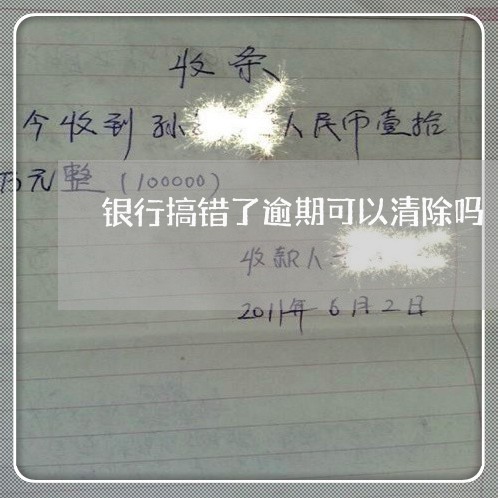 收条
今收到孙 人民币壹拾
万元整(100000)
银行搞错了逾期可以清除吗
收款人
2011年6月2日